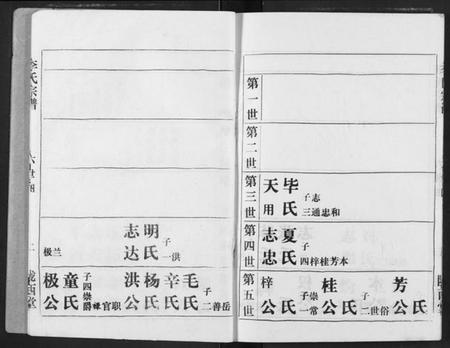 第一世
第二世
第三世
天用 毕氏 子三 志通忠和
第四世
志忠 夏氏 子四 梓桂芳本
第五世
梓公 氏 子一 崇常
桂公 氏 子二 世俗
芳公 氏
李氏宗谱
陇西堂
志达 明氏 子一 洪
极兰
极公 童氏 子四 崇爵禄官职
洪公 杨氏 辛氏 毛氏 子二 善岳